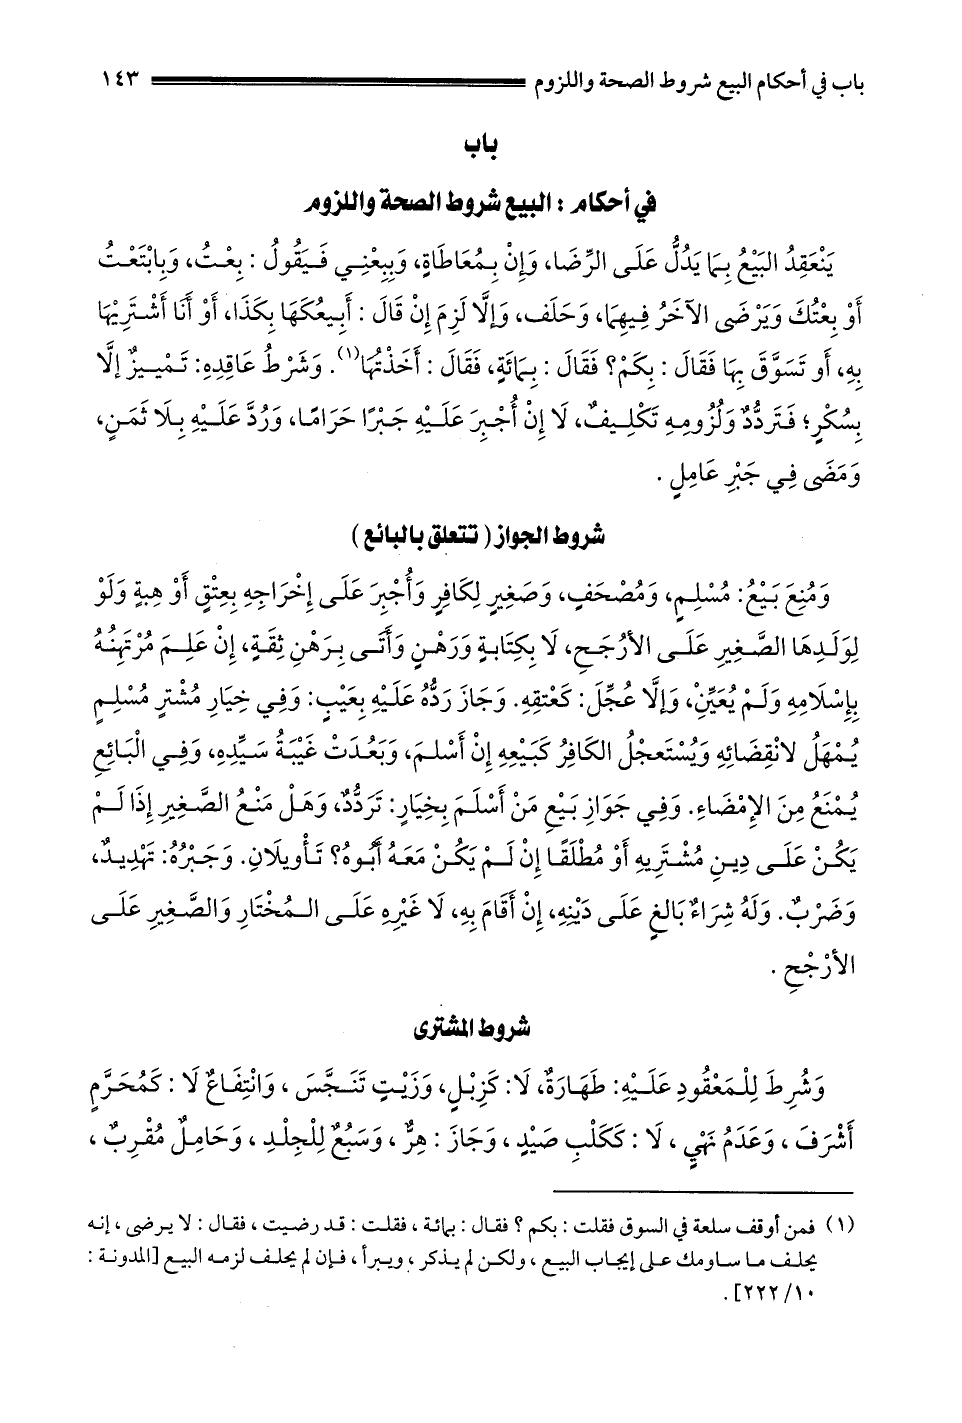 باب في أحكام البيع شروط الصحة واللزوم ١٤٣
باب
في أحكام : البيع شروط الصحة واللزوم
يَنْعَقِدُ البَيْعُ بِمَا يَدُلُّ عَلَى الرِّضَا، وَإِنْ بِمُعَاطَاةٍ، وَبِبِعْنِي فَيَقُولُ : بِعْتُ، وَبِابْتَعْتُ
أَوْ بِعْتُكَ وَيَرْضَى الآخَرُ فِيهِمَا، وَحَلَف، وَإِلَّا لَزِمَ إِنْ قَالَ : أَبِيعُكَهَا بِكَذَا، أَوْ أَنَا أَشْتَرِيْهَا
بِهِ، أَو تَسَوَّقَ بِهَا فَقَالَ : بِكَمْ؟ فَقَالَ : بِمائَةٍ، فَقَالَ : أَخَذْتُهَا(١). وَشَرْطُ عَاقِدِهِ: تَمْيِيزٌ إلَّا
بِسُكْرٍ؛ فَتَرَدُّدٌ وَلُزُومِهِ تَكْلِيفٌ، لَا إِنْ أُجْبِرَ عَلَيْهِ جَبْرًا حَرَامًا، وَرُدَّ عَلَيْهِ بِلَا ثَمَنٍ،
وَمَضَى فِي جَبْرِ عَامِلٍ .
شروط الجواز ( تتعلق بالبائع )
وَمُنِعَ بَيْعُ: مُسْلِمٍ، وَمُصْحَفٍ، وَصَغِيرٍ لِكَافِرٍ وَأُجْبِرَ عَلَى إِخْرَاجِهِ بِعِتْقٍ أَوْ هِبَةٍ وَلَوْ
لِوَلَدِهَا الصَّغِيرِ عَلَى الأَرْجَحِ، لَا بِكِتَابَةٍ وَرَهْنٍ وَأَتَى بِرَهْنِ ثِقَةٍ، إِنْ عَلِمَ مُرْتَهِنُهُ
بِإِسْلَامِهِ وَلَمْ يُعَيِّنْ، وَإِلَّا عُجِّلَ: كَعِتْقِهِ. وَجَازَ رَدُّهُ عَلَيْهِ بِعَيْبٍ: وَفِي خِيَارِ مُشْتَرٍ مُسْلِمٍ
يُمْهَلُ لانْقِضَائِهِ وَيُسْتَعجْلُ الكَافِرُ كَبَيْعِهِ إِنْ أَسْلَمَ، وَبَعُدَتْ غَيْبَةُ سَيِّدِهِ، وَفِي الْبَائِعِ
يُمْنَعُ مِنَ الإِمْضَاءِ. وَفِي جَوَازِ بَيْعِ مَنْ أَسْلَمَ بِخِيَارٍ: تَرَدُّدٌ، وَهَلْ مَنْعُ الصَّغِيرِ إِذَا لَمْ
يَكُنْ عَلَى دِينِ مُشْتَرِيهِ أَوْ مُطْلَقًا إِنْ لَمْ يَكُنْ مَعَهُ أَبُوهُ؟ تَأْوِيلَانِ. وَجَبْرُهُ: تَهْدِيدٌ،
وَضَرْبٌ. وَلَهُ شِرَاءُ بَالغٍ عَلَى دَيْنِهِ، إِنْ أَقَامَ بِهِ، لَا غَيْرِهِ عَلَى المُخْتَارِ وَالصَّغِيرِ عَلَى
الأَرْجْحِ .
شروط المشترى
وَشُرِطَ لِلْمَعْقُودِ عَلَيْهِ: طَهَارَةٌ، لَا: كَزِبْلٍ، وَزَيْتٍ تَنَجَّسَ ، وَانْتِفَاعٌ لَا : كَمُحَرَّمٍ
أَشْرَفَ ، وَعَدَمُ نَهْيٍ ، لَا : كَكَلْبِ صَيْدٍ ، وَجَازَ : هِرٌّ ، وَسَبُعٌ لِلْجِلْدِ ، وَحَامِلٌ مُقْرِبٌ ،
(١) فمن أوقف سلعة في السوق فقلت : بكم ؟ فقال : بمائة ، فقلت : قد رضيت ، فقال : لا يرضى ، إنه
يحلف ما ساومك على إيجاب البيع ، ولكن لم يذكر ، ويبرأ ، فإن لم يحلف لزمه البيع [المدونة :
١٠/ ٢٢٢] .